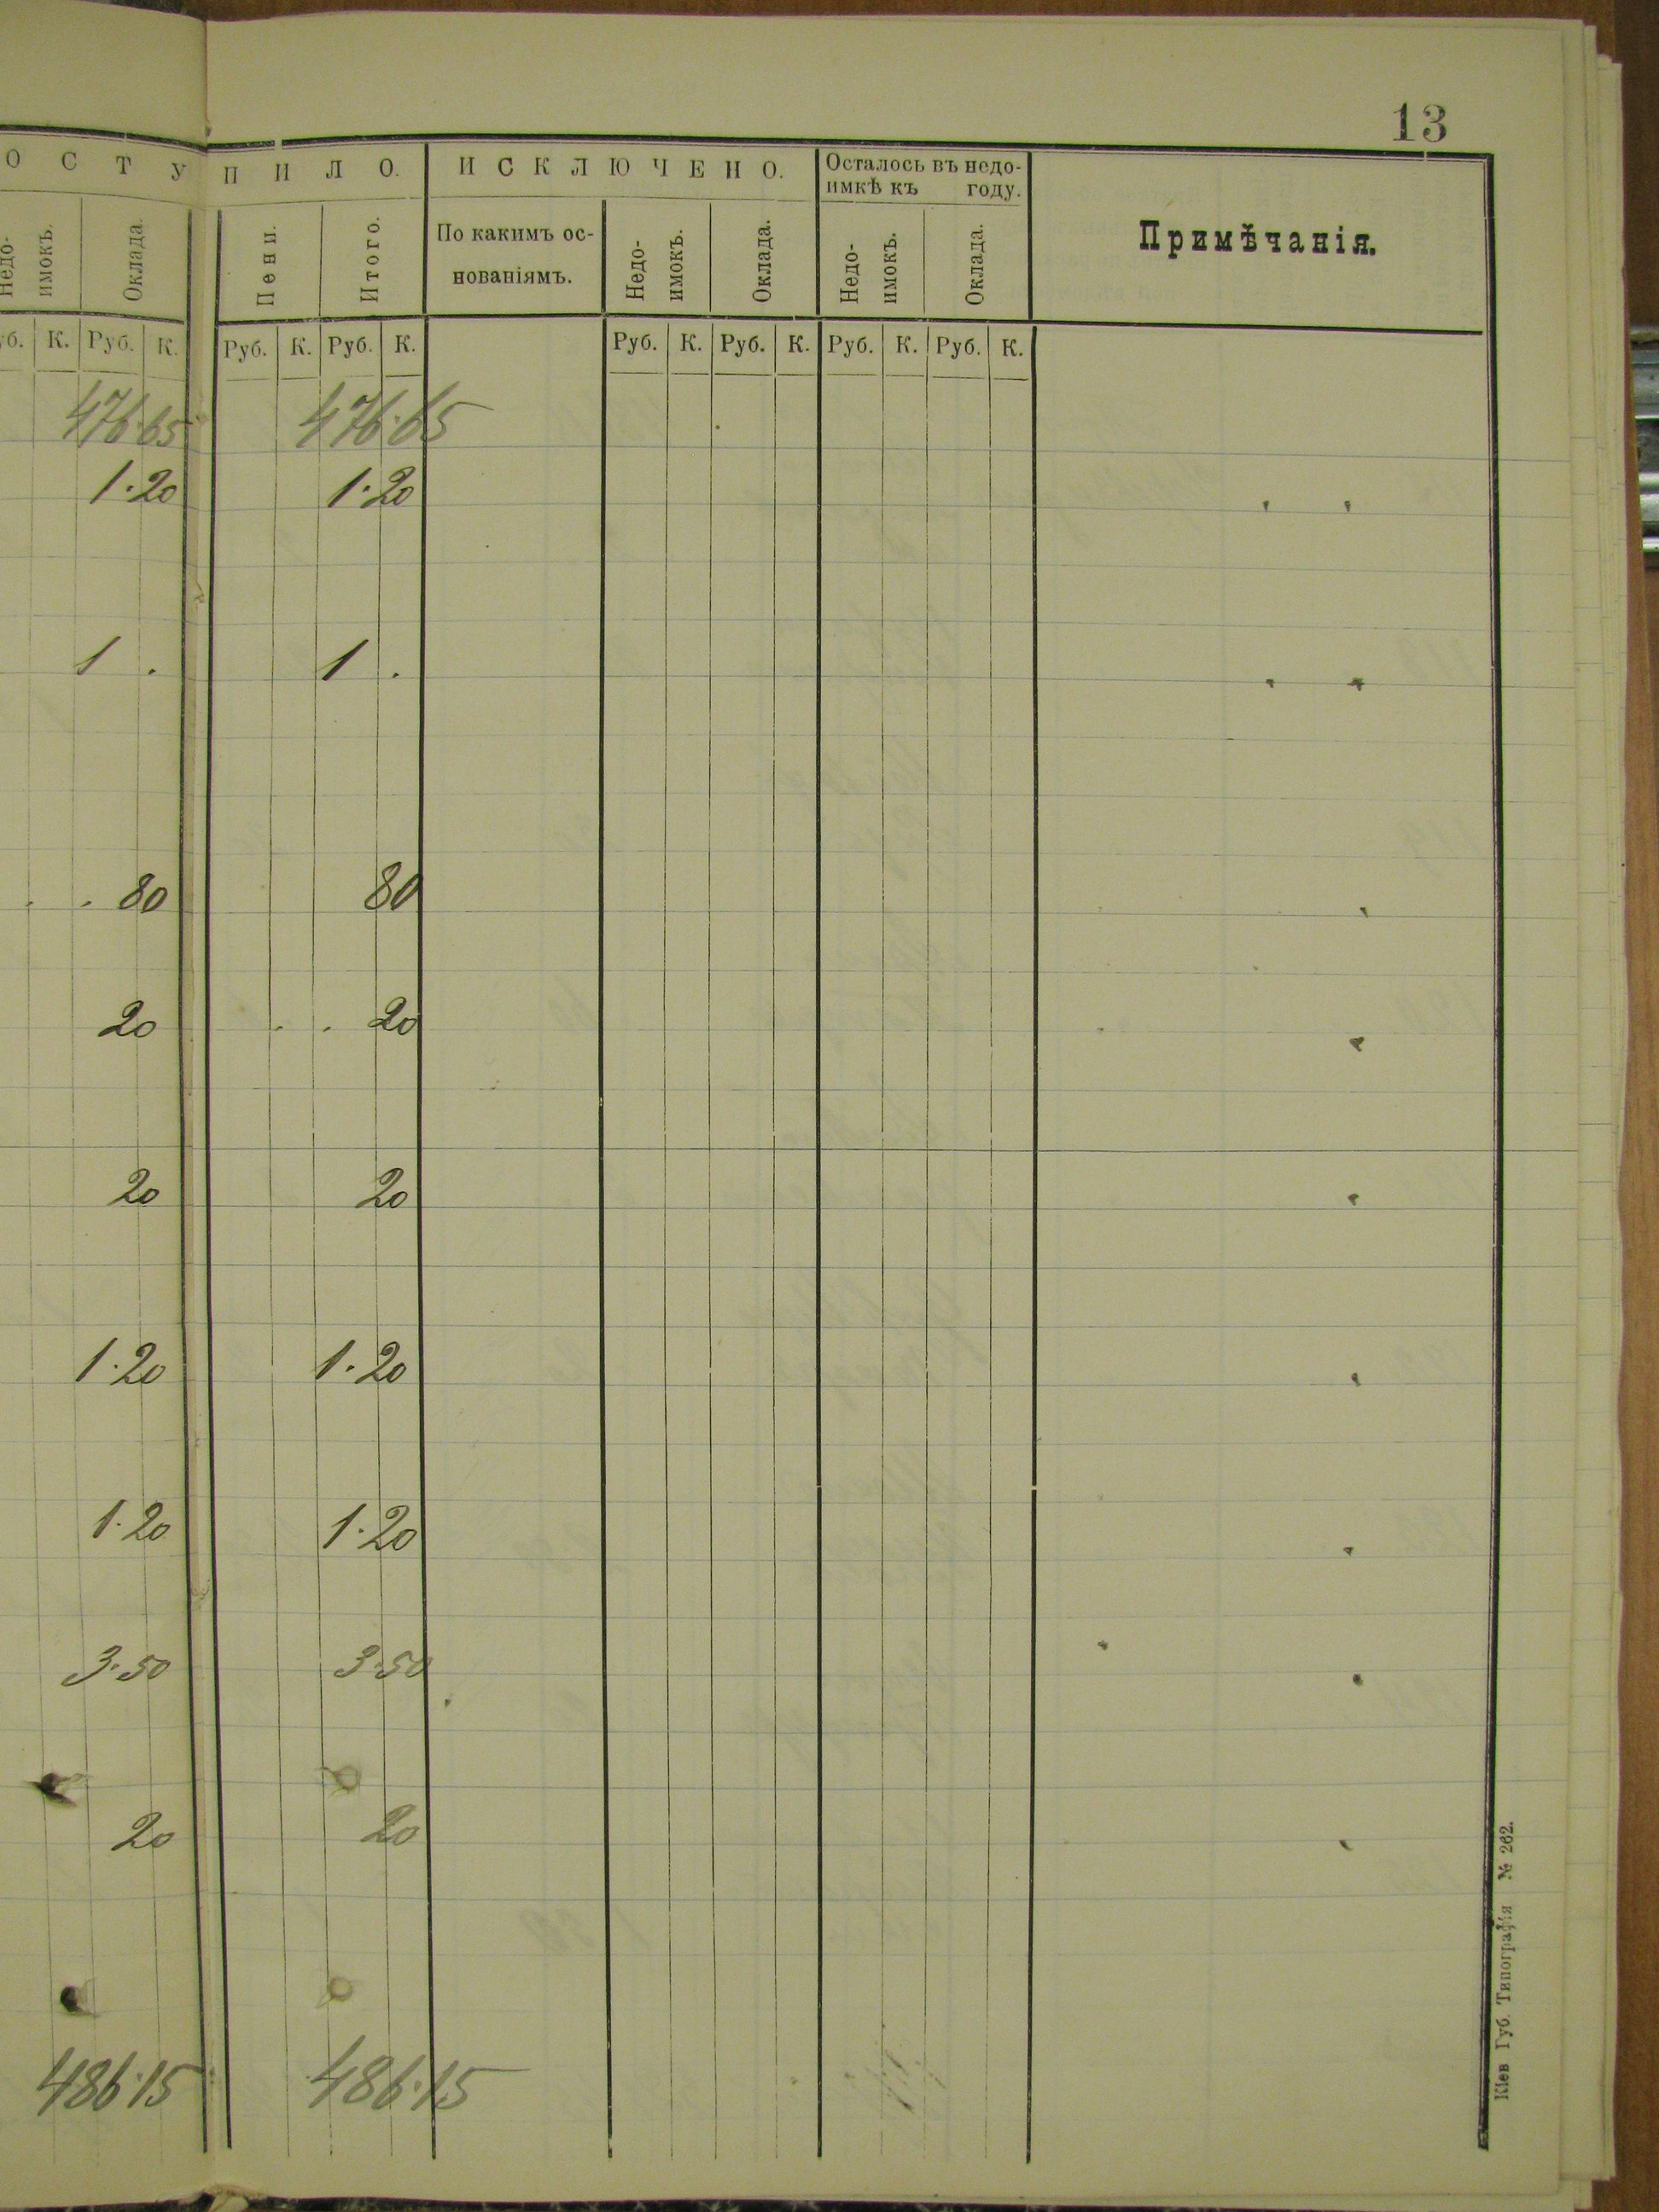 13
О С Т У П И Л О. И С К Л Ю Ч Е Н О. Осталось въ недо-
имкѣ къ году.
Недо-
имокъ. Оклада. Пени. Итого. По какимъ ос-
нованіямъ. Недо-
имокъ. Оклада. Недо-
имокъ. Оклада. Примѣчанія.
уб. К. Руб. К. Руб. К. Руб. К. Руб. К. Руб. К. Руб. К. Руб. К.
476·65 476·65
1·20 1·20
1 . 1 .
. . 80 80
20 . . 20
20 20
1·20 1·20
1·20 1·20
3·50 3·50
20 20
486·15 486·15
Кіев Губ. Типографія № 262.